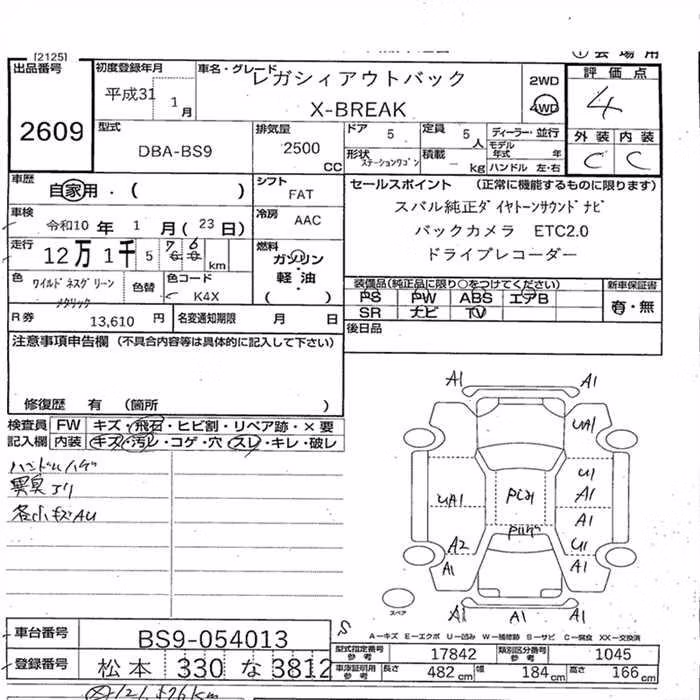 [2125]
出品番号
2609
初度登録年月
平成31 1月
車名・グレード
レガシィアウトバック
X-BREAK
2WD
4WD
評価点
4
外装 内装
C C
型式
DBA-BS9
排気量
2500
CC
ドア 5
定員 5人
ディーラー・並行
モデル年式 年
形状 ステーションワゴン
積載 - kg
ハンドル 左・右
車歴
自家用・( )
シフト
FAT
セールスポイント (正常に機能するものに限ります)
スバル純正ダイヤトーンサウンドナビ
バックカメラ ETC2.0
ドライブレコーダー
車検
令和10年 1月(23日)
冷房
AAC
走行
12万1千5 km
燃料
ガソリン
軽・油
( )
色
ワイルドネスグリーン
メタリック
色替
色コード
K4X
装備品(純正品に限り○をつけてください)
PS PW ABS エアB
SR ナビ TV
新車保証書
有・無
R券
13,610 円
名変通知期限 月 日
後日品
注意事項申告欄 (不具合内容等は具体的に記入して下さい)
修復歴 有 (箇所 )
検査員
記入欄
FW キズ・飛石・ヒビ割・リペア跡・×要
内装 キズ・汚レ・コゲ・穴・スレ・キレ・破レ
ハンドルハゲ
異臭アリ
各小キズAU
A1 A1
UA1
U1
UA1
A1
A1
A2
U1
A1
A1
A1 A1 A1
スペア
A-キズ E-エクボ U-凹み W-補修跡 S-サビ C-腐食 XX-交換済
車台番号
BS9-054013
登録番号
松本 330 な 3812
型式指定番号
参考
17842
類別区分番号
参考
1045
車庫証明用
参考
長さ 482 cm
幅 184 cm
高さ 166 cm